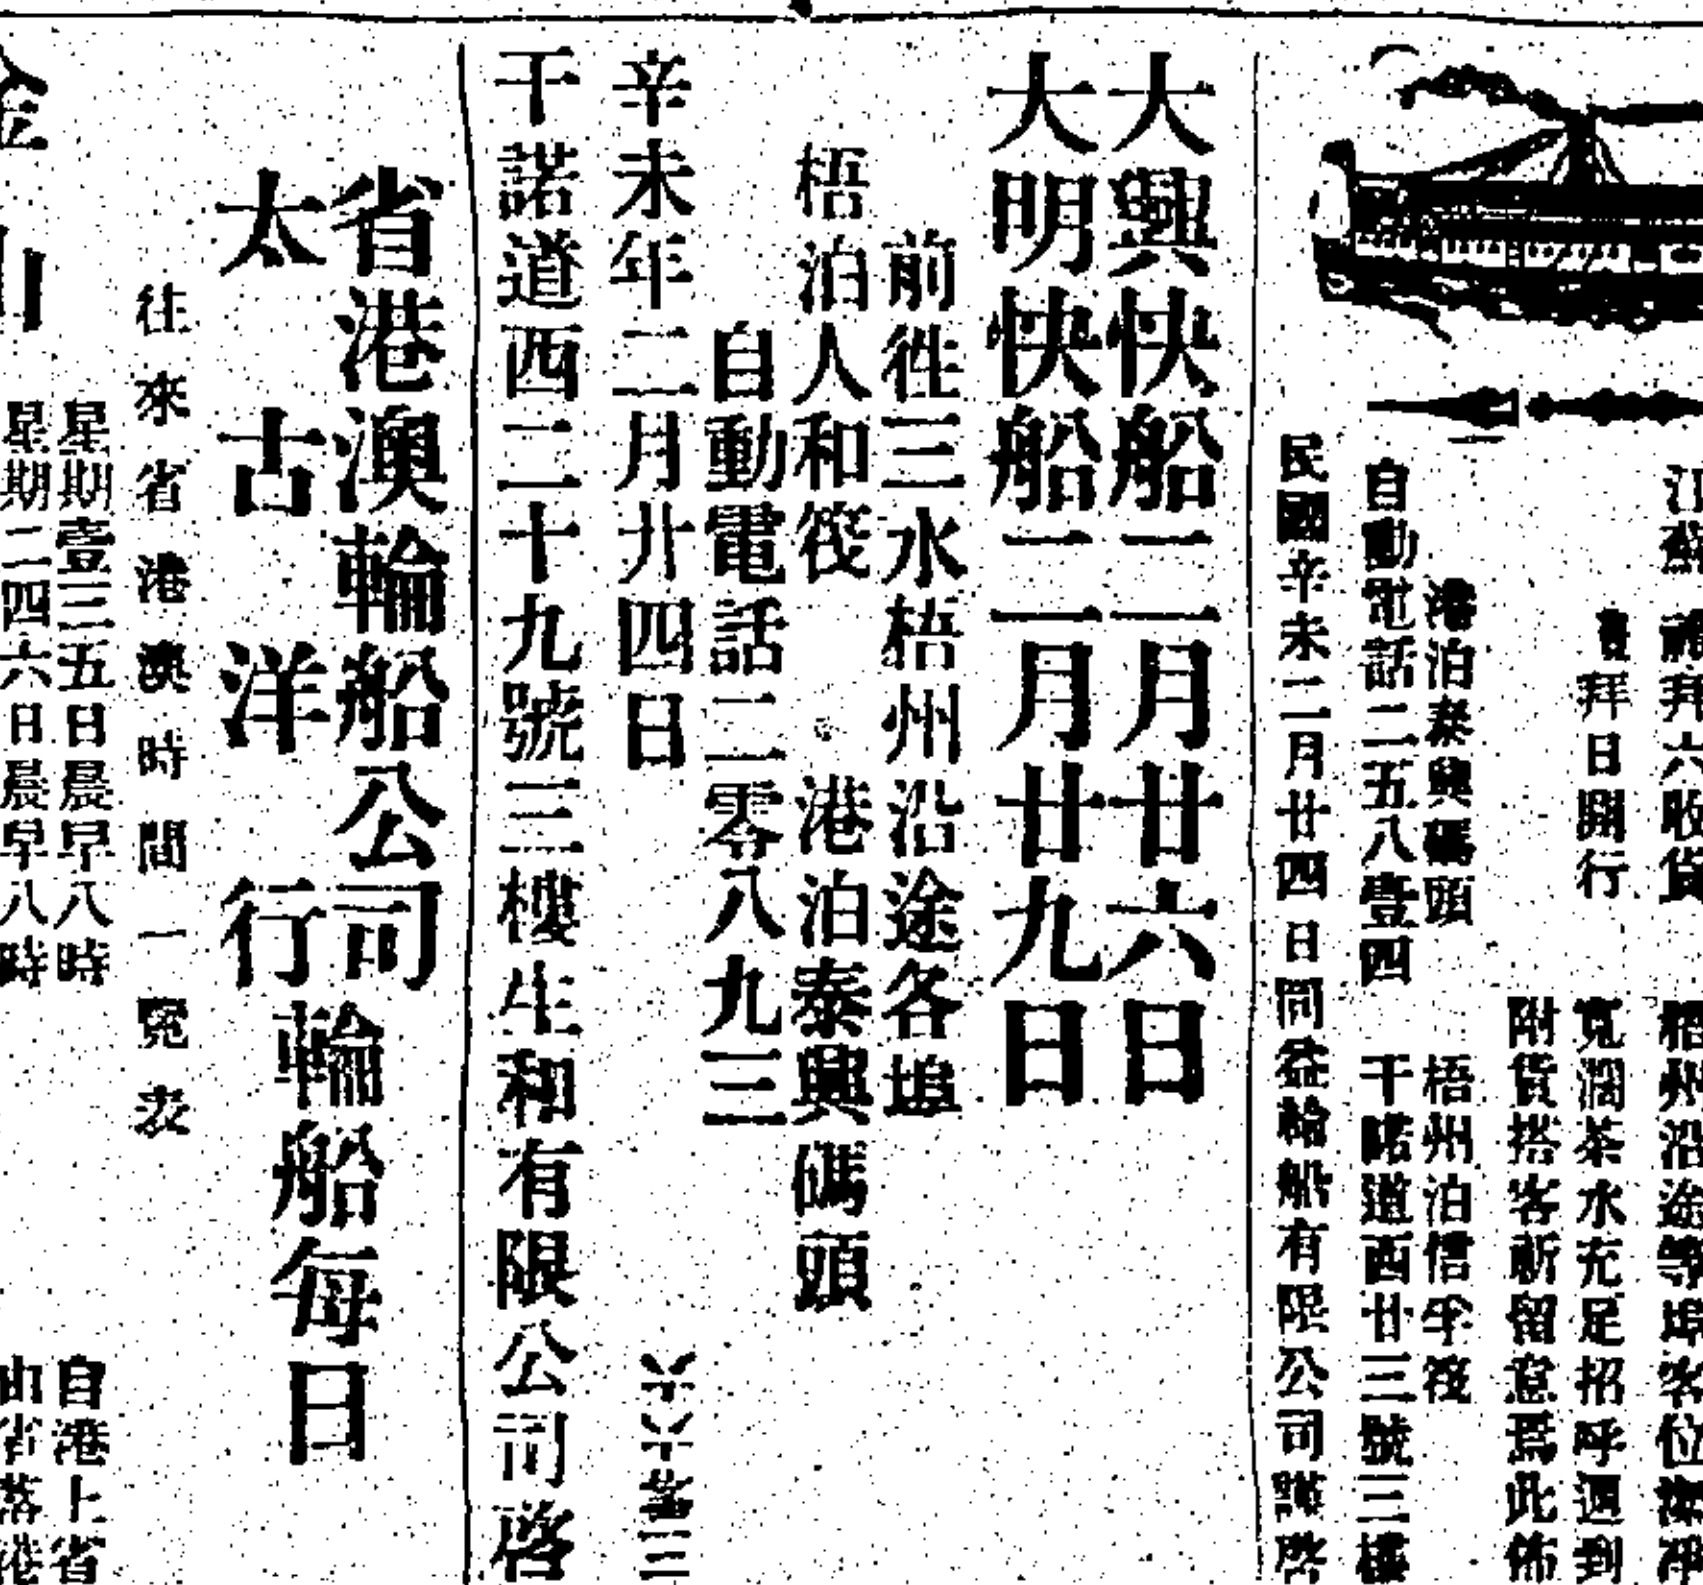 江蘇 禮拜六收貨 梧州沿途等埠客位潔淨
拜日開行 寬濶茶水充足招呼週到
附貨搭客祈留意焉此佈
港泊泰興碼頭 梧州泊信孚筏
自動電話二五八壹四 干諾道西廿三號三樓
民國辛未二月廿四日同益輪船有限公司謹啓
大興快船二月廿六日
大明快船二月廿九日
前往三水梧州沿途各埠
梧泊人和筏 港泊泰興碼頭
自動電話二零八九三
辛未年二月廿四日
干諾道西二十九號三樓生和有限公司啓
省港澳輪船公司
太古洋行
輪船每日
往來省港澳時間一覽表
星期壹三五日晨早八時 自港上省
星期二四六日晨早八時 由省落港
金山